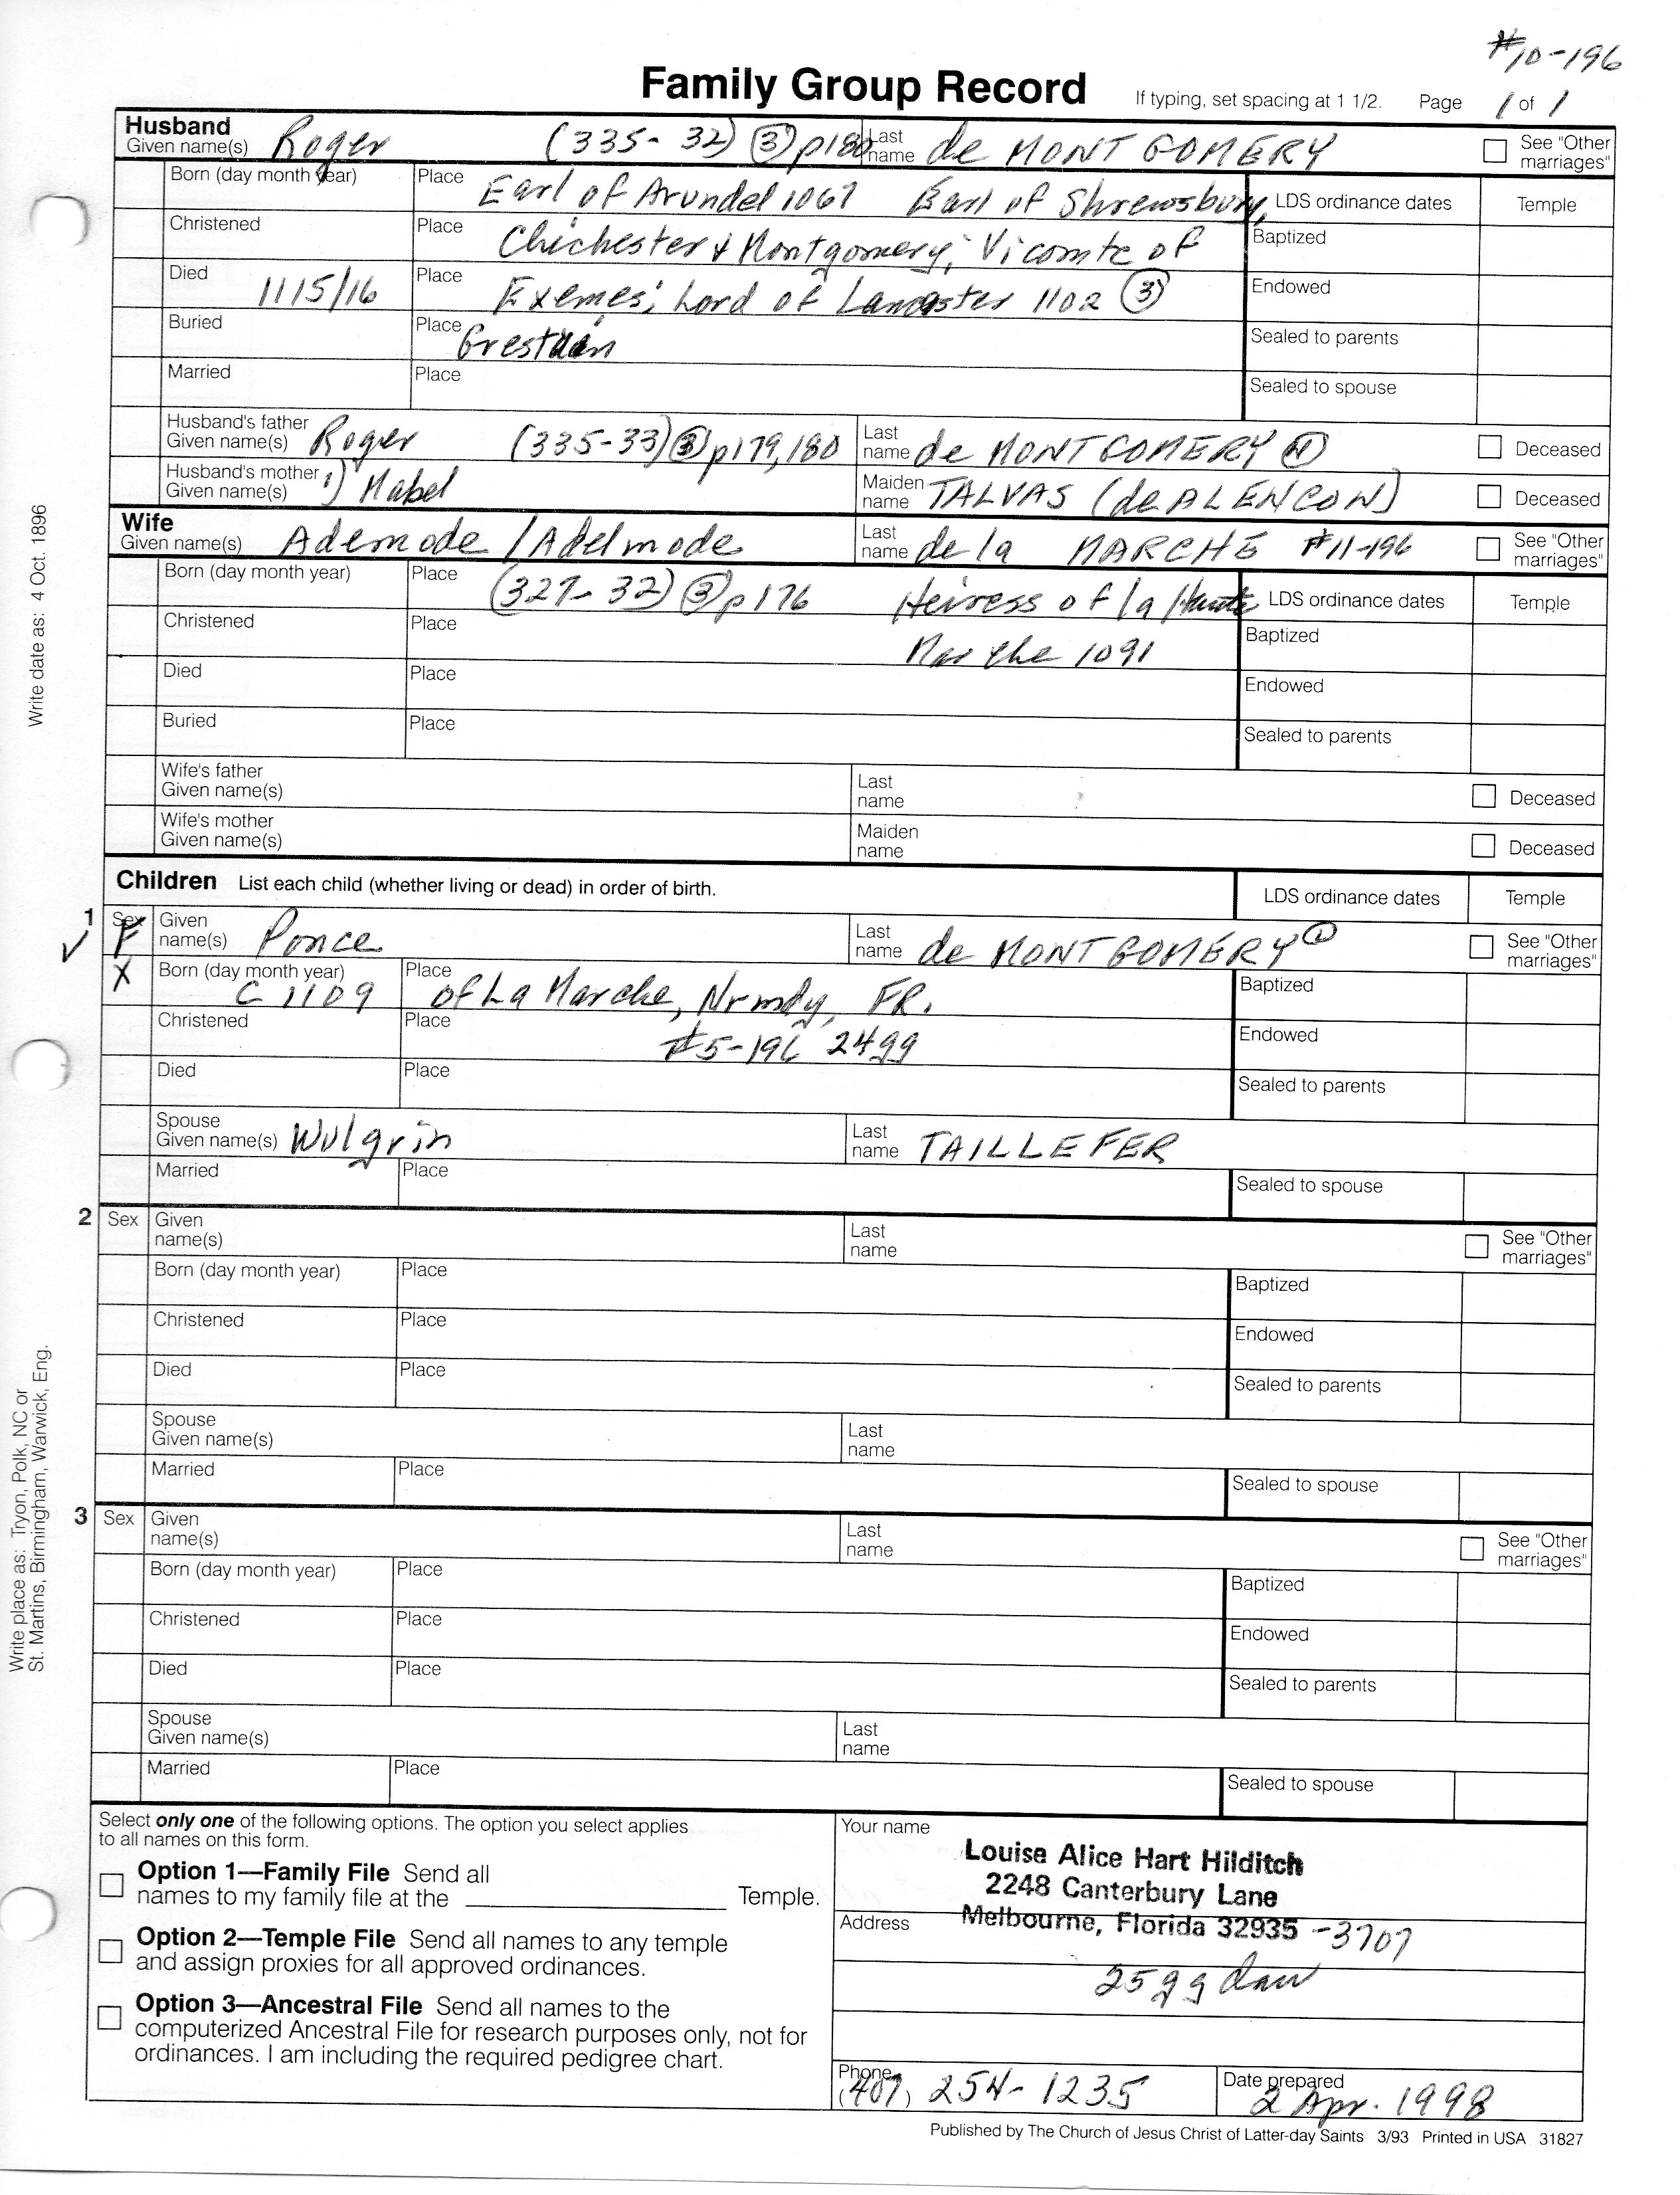 #10-196
Family Group Record If typing, set spacing at 1 1/2. Page 1 of 1
Husband
Given name(s) Roger (335-32) (3) p180 Last name de MONTGOMERY See "Other marriages"
Born (day month year) Place Earl of Arundel 1067 Earl of Shrewsbury, LDS ordinance dates Temple
Christened Place Chichester & Montgomery; Vicomte of Baptized
Died 1115/16 Place Exemes; Lord of Lancaster 1102 (3) Endowed
Buried Place Sealed to parents
Married Place Sealed to spouse
Husband's father Given name(s) Roger (335-33) (3) p179,180 Last name de MONTGOMERY Deceased
Husband's mother Given name(s) 1) Mabel Maiden name TALVAS (de ALENCON) Deceased
Wife
Given name(s) Ademode / Adelmode Last name de la MARCHE #11-196 See "Other marriages"
Born (day month year) Place (327-32) (3) p176 Heiress of la Haute LDS ordinance dates Temple
Christened Place Marche 1091 Baptized
Died Place Endowed
Buried Place Sealed to parents
Wife's father Given name(s) Last name Deceased
Wife's mother Given name(s) Maiden name Deceased
Children List each child (whether living or dead) in order of birth. LDS ordinance dates Temple
1 Sex F Given name(s) Ponce Last name de MONTGOMERY (1) See "Other marriages"
X Born (day month year) C 1109 Place of La Marche, Nrmdy, FR. Baptized
Christened Place #5-196 24gg Endowed
Died Place Sealed to parents
Spouse Given name(s) Wulgrin Last name TAILLEFER
Married Place Sealed to spouse
2 Sex Given name(s) Last name See "Other marriages"
Born (day month year) Place Baptized
Christened Place Endowed
Died Place Sealed to parents
Spouse Given name(s) Last name
Married Place Sealed to spouse
3 Sex Given name(s) Last name See "Other marriages"
Born (day month year) Place Baptized
Christened Place Endowed
Died Place Sealed to parents
Spouse Given name(s) Last name
Married Place Sealed to spouse
Select only one of the following options. The option you select applies
to all names on this form.
Option 1—Family File Send all
names to my family file at the Temple.
Option 2—Temple File Send all names to any temple
and assign proxies for all approved ordinances.
Option 3—Ancestral File Send all names to the
computerized Ancestral File for research purposes only, not for
ordinances. I am including the required pedigree chart.
Your name Louise Alice Hart Hilditch
2248 Canterbury Lane
Address Melbourne, Florida 32935 -3707
25gg dau
Phone (407) 254-1235 Date prepared 2 Apr. 1998
Published by The Church of Jesus Christ of Latter-day Saints 3/93 Printed in USA 31827
Write date as: 4 Oct. 1896
Write place as: Tryon, Polk, NC or
St. Martins, Birmingham, Warwick, Eng.